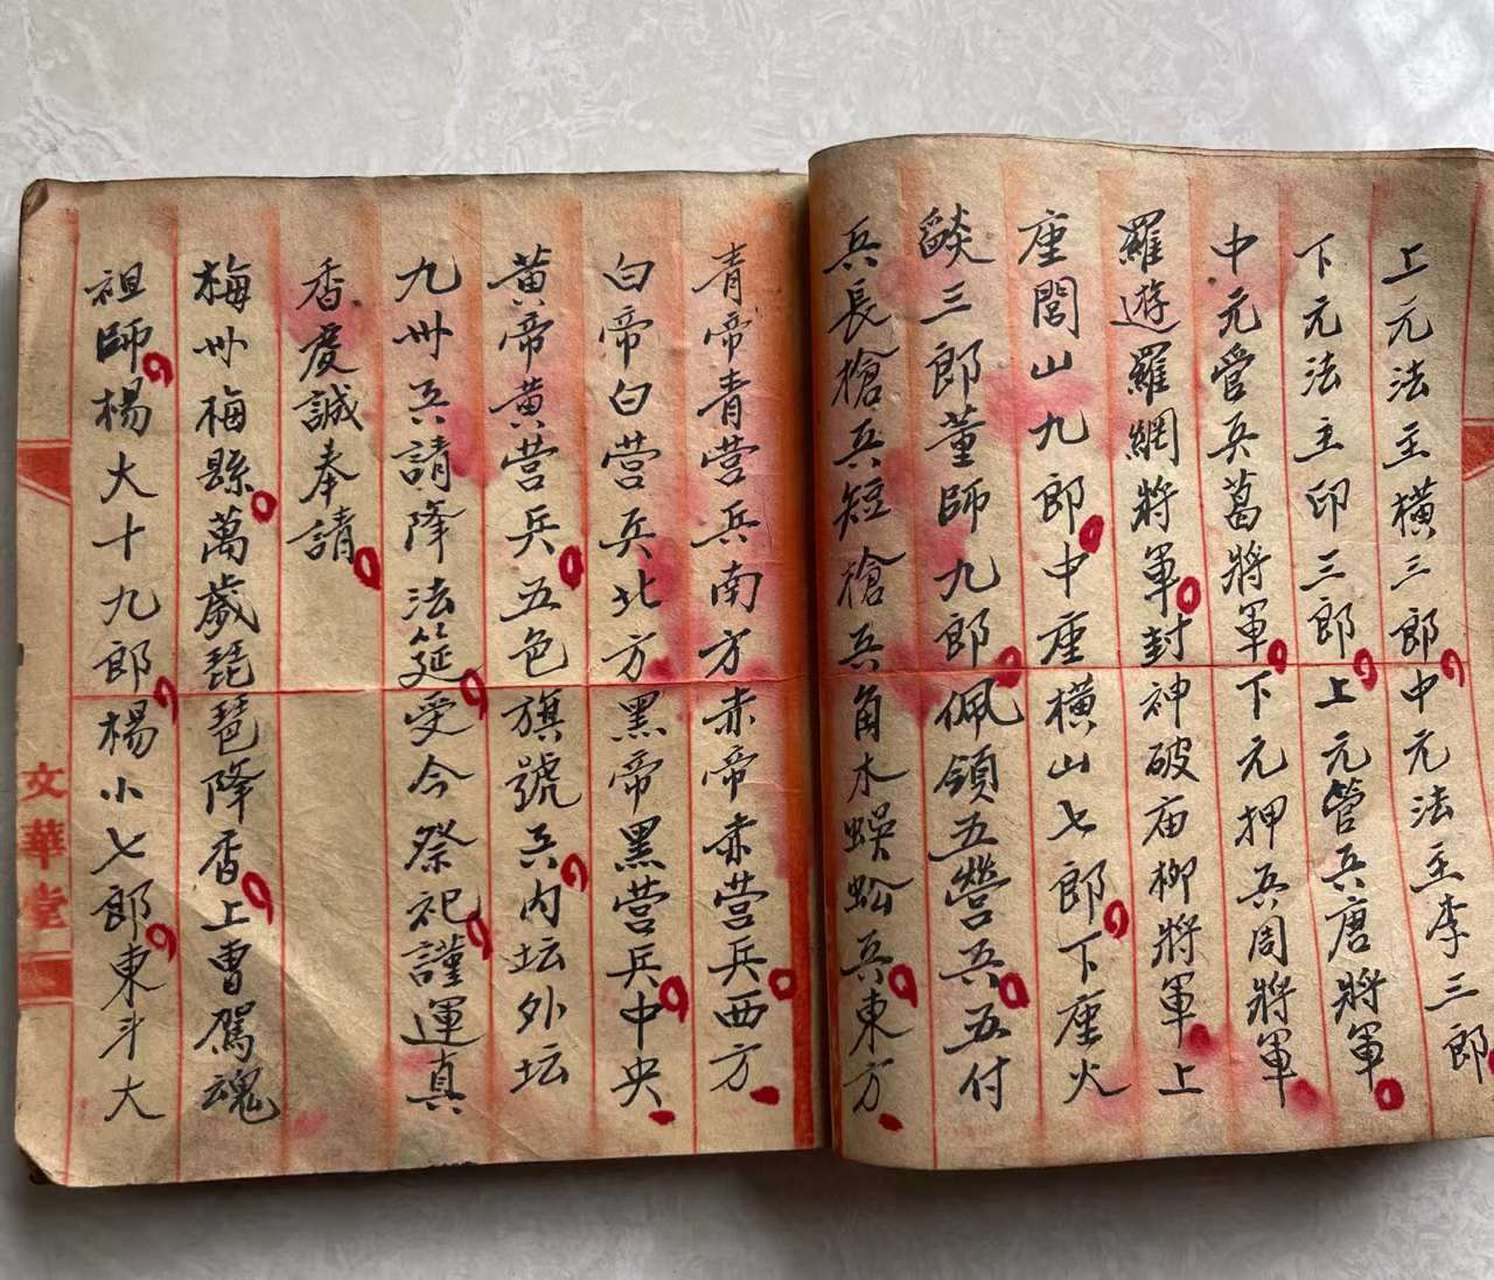 上元法主橫三郎中元法主李三郎
下元法主邱三郎上元管兵唐將軍
中元管兵葛將軍下元押兵周將軍
羅遊羅網將軍封神破庙柳將軍上
座閭山九郎中座橫山七郎下座火
燄三郎董師九郎佩領五營兵五付
兵長槍兵短槍兵角木蜈蚣兵東方
青帝青营兵南方赤帝赤营兵西方
白帝白营兵北方黑帝黑营兵中央
黄帝黄营兵五色旗號兵内坛外坛
九州兵請降法筵受今祭祀謹運真
香虔誠奉請
梅州梅縣萬歲琵琶降香上曹駕魂
祖師楊大十九郎楊小七郎東斗大
文華堂